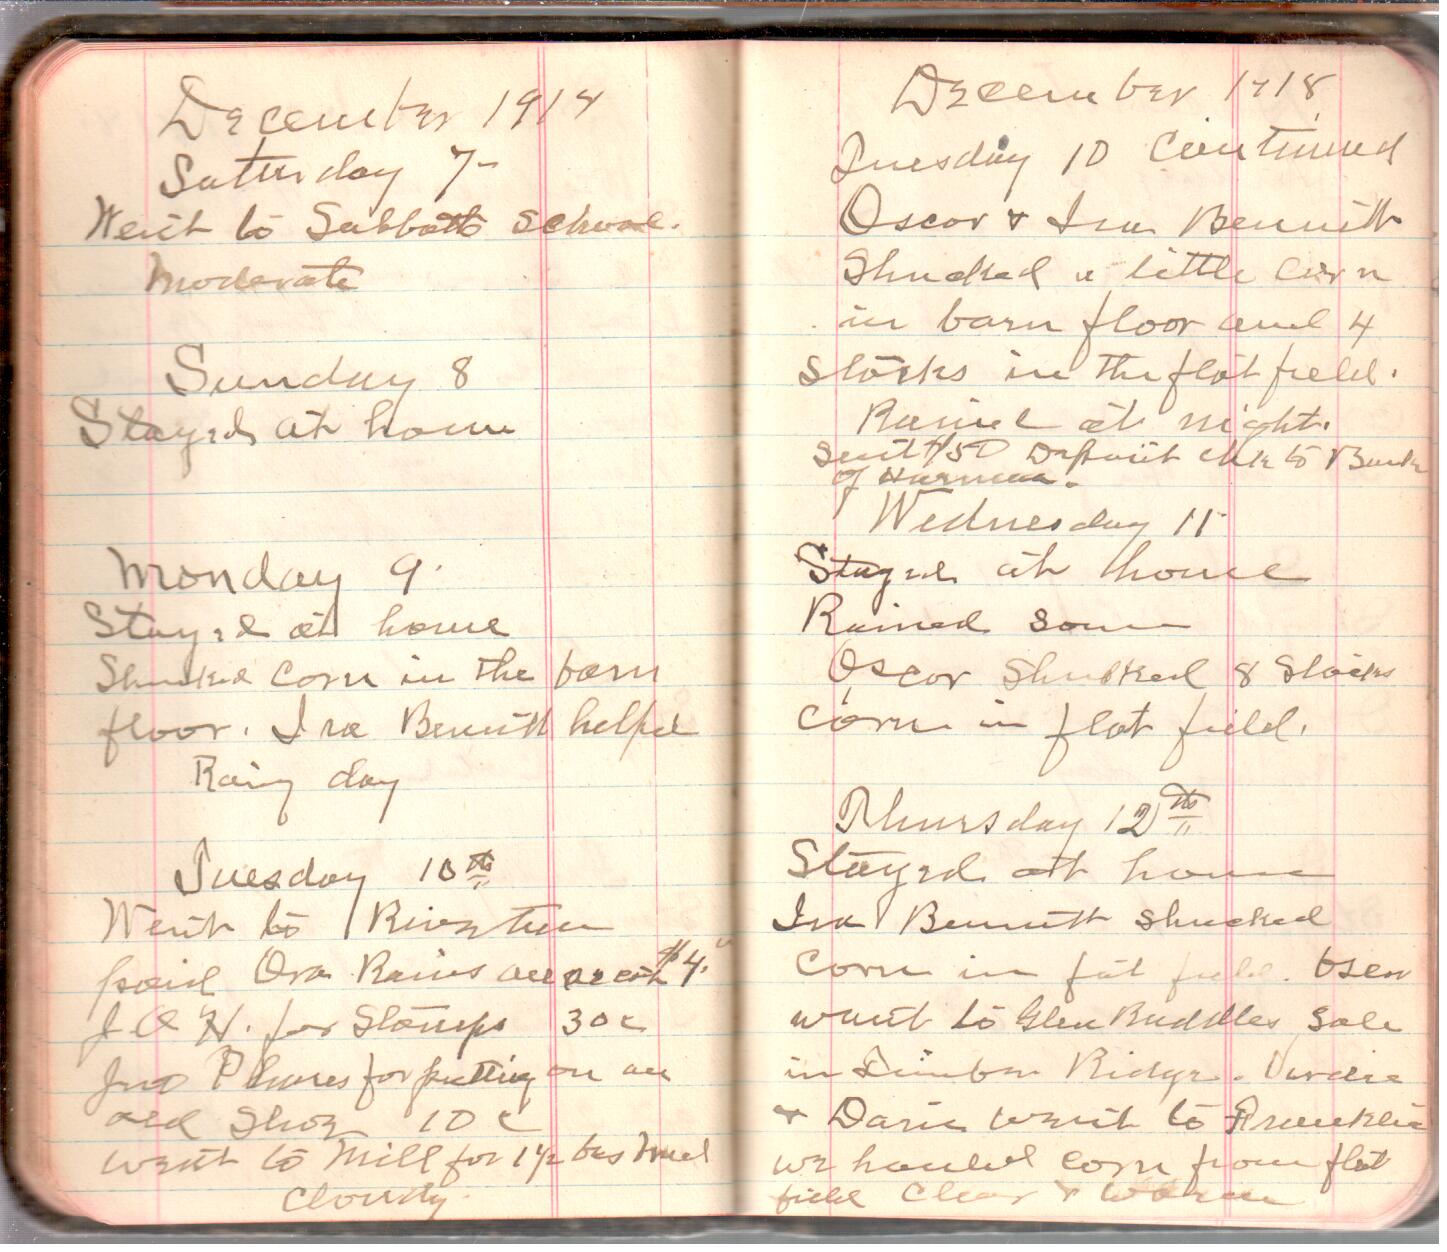 December 1918
Saturday 7-
Went to Sabbath school.
Moderate
Sunday 8
Stayed at home
Monday 9.
Stayed at home
Shucked corn in the barn
floor. Ira Bennett helped
Rainy day
Tuesday 10th
Went to Riverton
paid Ora Rains on acct $4.
J.O.H. for Stamps 30c
Jno Phares for putting on an
old Shoe 10c
went to Mill for 1½ bus meal
Cloudy.
December 1918
Tuesday 10 Continued
Oscar & Ira Bennett
Shucked a little corn
in barn floor and 4
stocks in the flat field.
Rained at night.
Sent $150 Deposit chk to Bank
of Harman.
Wednesday 11
Stayed at home
Rained some
Oscar Shucked 8 Stocks
corn in flat field.
Thursday 12th
Stayed at home
Ira Bennett shucked
corn in flat field.
went to Glen Ruddles Sale
in Timber Ridge.
& Daris went to Franklin
we hauled corn from flat
field Clear & warm